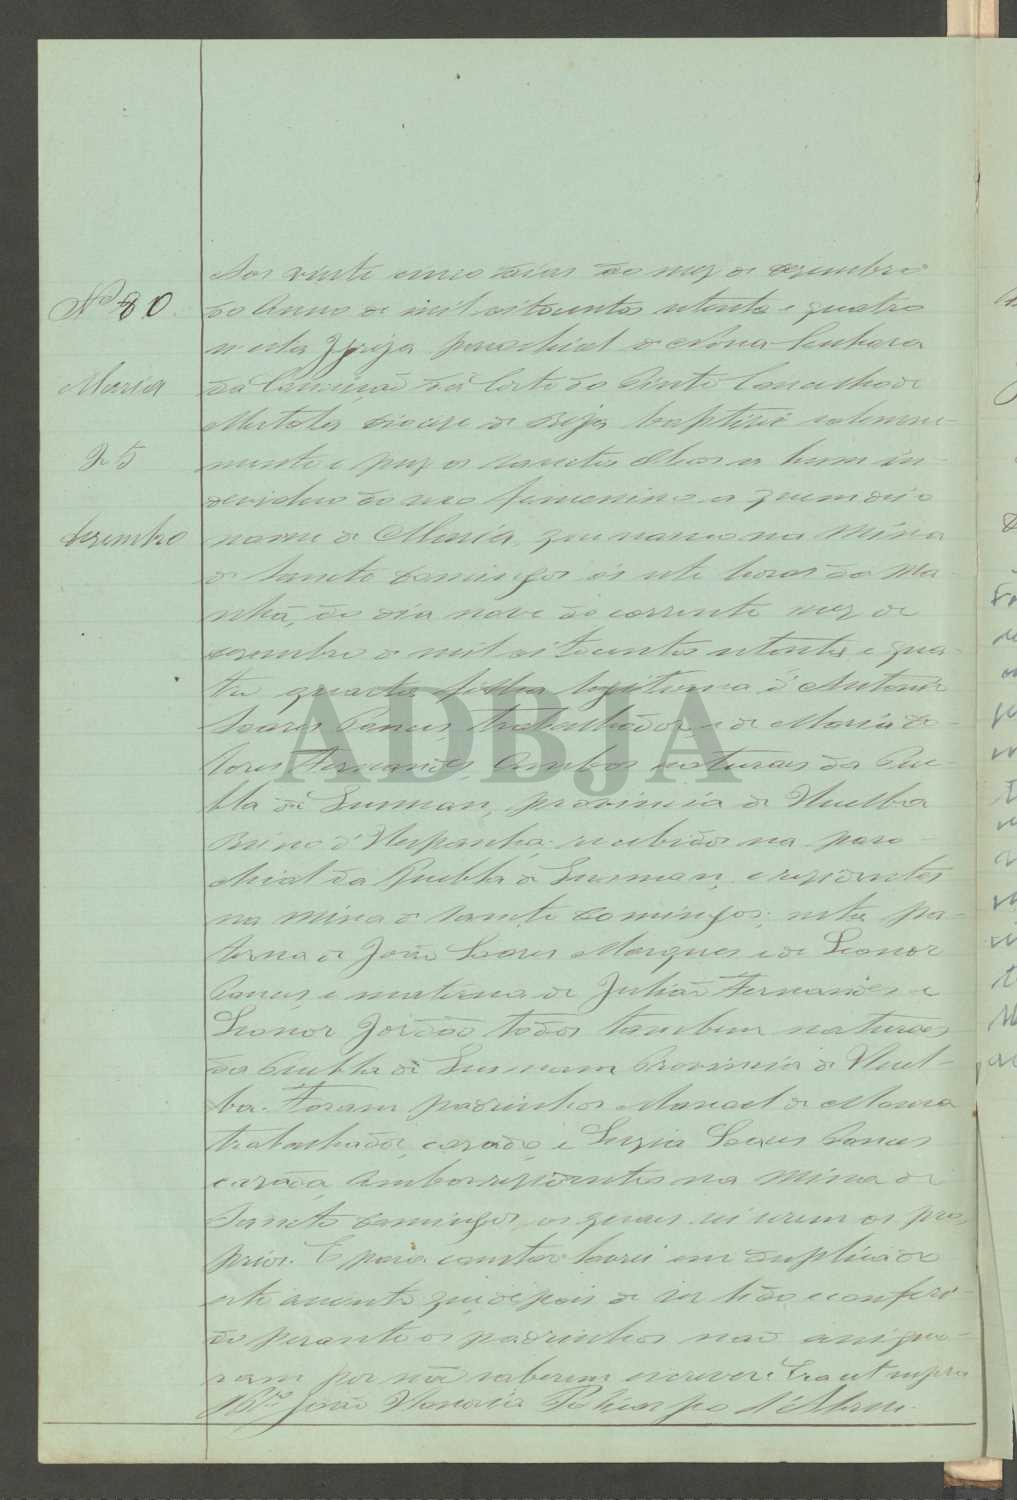 Nº 80.
Maria
25
dezembro
Aos vinte cinco dias do mez de dezembro
do Anno de mil oitocentos oitenta e quatro
n'esta Igreja parochial de Nossa Senhora
da Conceição da Corte do Pinto Concelho de
Mertola diocese de Beja baptizei solemne-
mente e puz os sanctos Oleos a hum in-
dividuo do sexo femenino a quem dei o
nome de Maria, que nasceo na Mina
de Sancto Domingos ás sete horas da Ma-
nhã, do dia nove do corrente mez de
dezembro de mil oitocentos oitenta e qua-
tro quarta filha legitima d'Antonio
Soares Ponces trabalhador e de Maria Do-
lores Fernandes, Ambos naturaes da Pue-
bla de Gusman, provincia de Huelba
Reino d'Hespanha: recebidos na paro-
chial da Puebla de Gusman, e rezidentes
na Mina de Sancto Domingos: neta pa-
terna de João Soares Marques e de Leonor
Ponces e materna de Julião Fernandes e
Leonor Jordão todos tambem naturaes
da Puebla de Gusmam Provincia de Huel-
ba. Foram padrinhos Manoel de Moura
trabalhador, cazado, e Luzia Ponces
cazada Ambos rezidentes na Mina de
Sancto Domingos, os quaes sei serem os pro-
prios. E para constar lavrei em duplicado
este assento que depois de ser lido e conferi-
do perante os padrinhos não assigna-
ram por não saberem escrever. Era ut supra
João
ADBJA